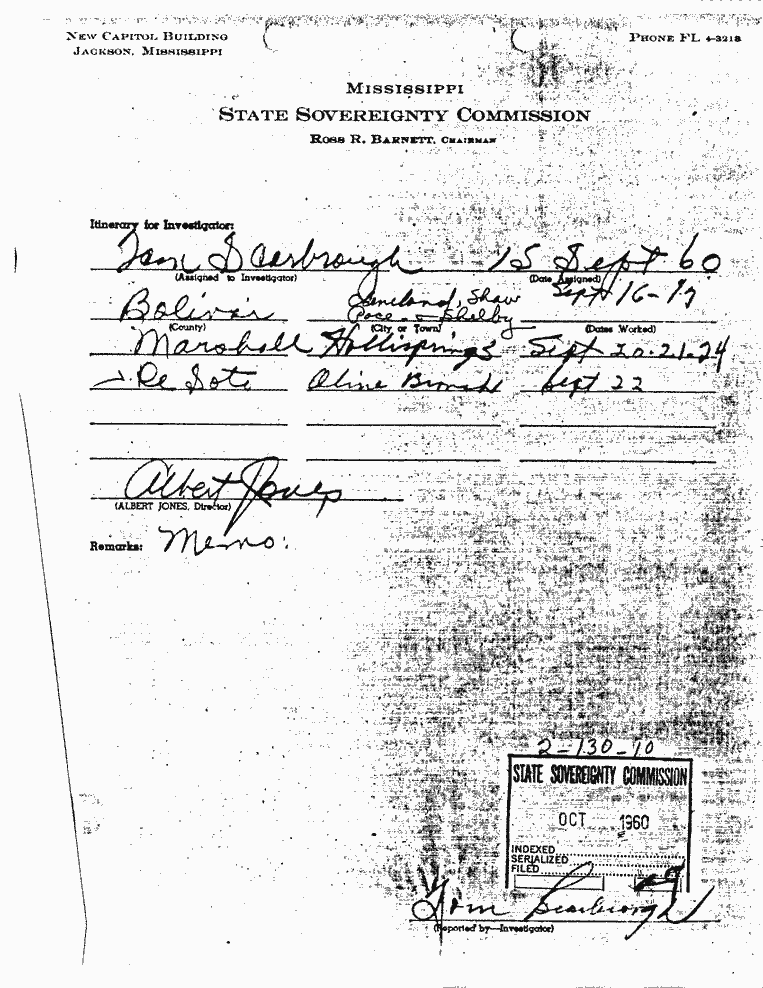 NEW CAPITOL BUILDING
JACKSON, MISSISSIPPI
PHONE FL 4-3218
MISSISSIPPI
STATE SOVEREIGNTY COMMISSION
ROSS R. BARNETT, CHAIRMAN
Itinerary for Investigator:
Tom Scarbrough 15 Sept 60
(Assigned to Investigator) (Date Assigned)
Bolivar Cleveland, Shaw Pace & Shelby Sept 16-17
(County) (City or Town) (Dates Worked)
Marshall Hollisprings Sept 20-21-24
De Soto Olive Branch Sept 22
Albert Jones
(ALBERT JONES, Director)
Remarks: Memo:
2-130-10
STATE SOVEREIGNTY COMMISSION
OCT 1960
INDEXED
SERIALIZED
FILED
Tom Scarbrough
(Reported by—Investigator)